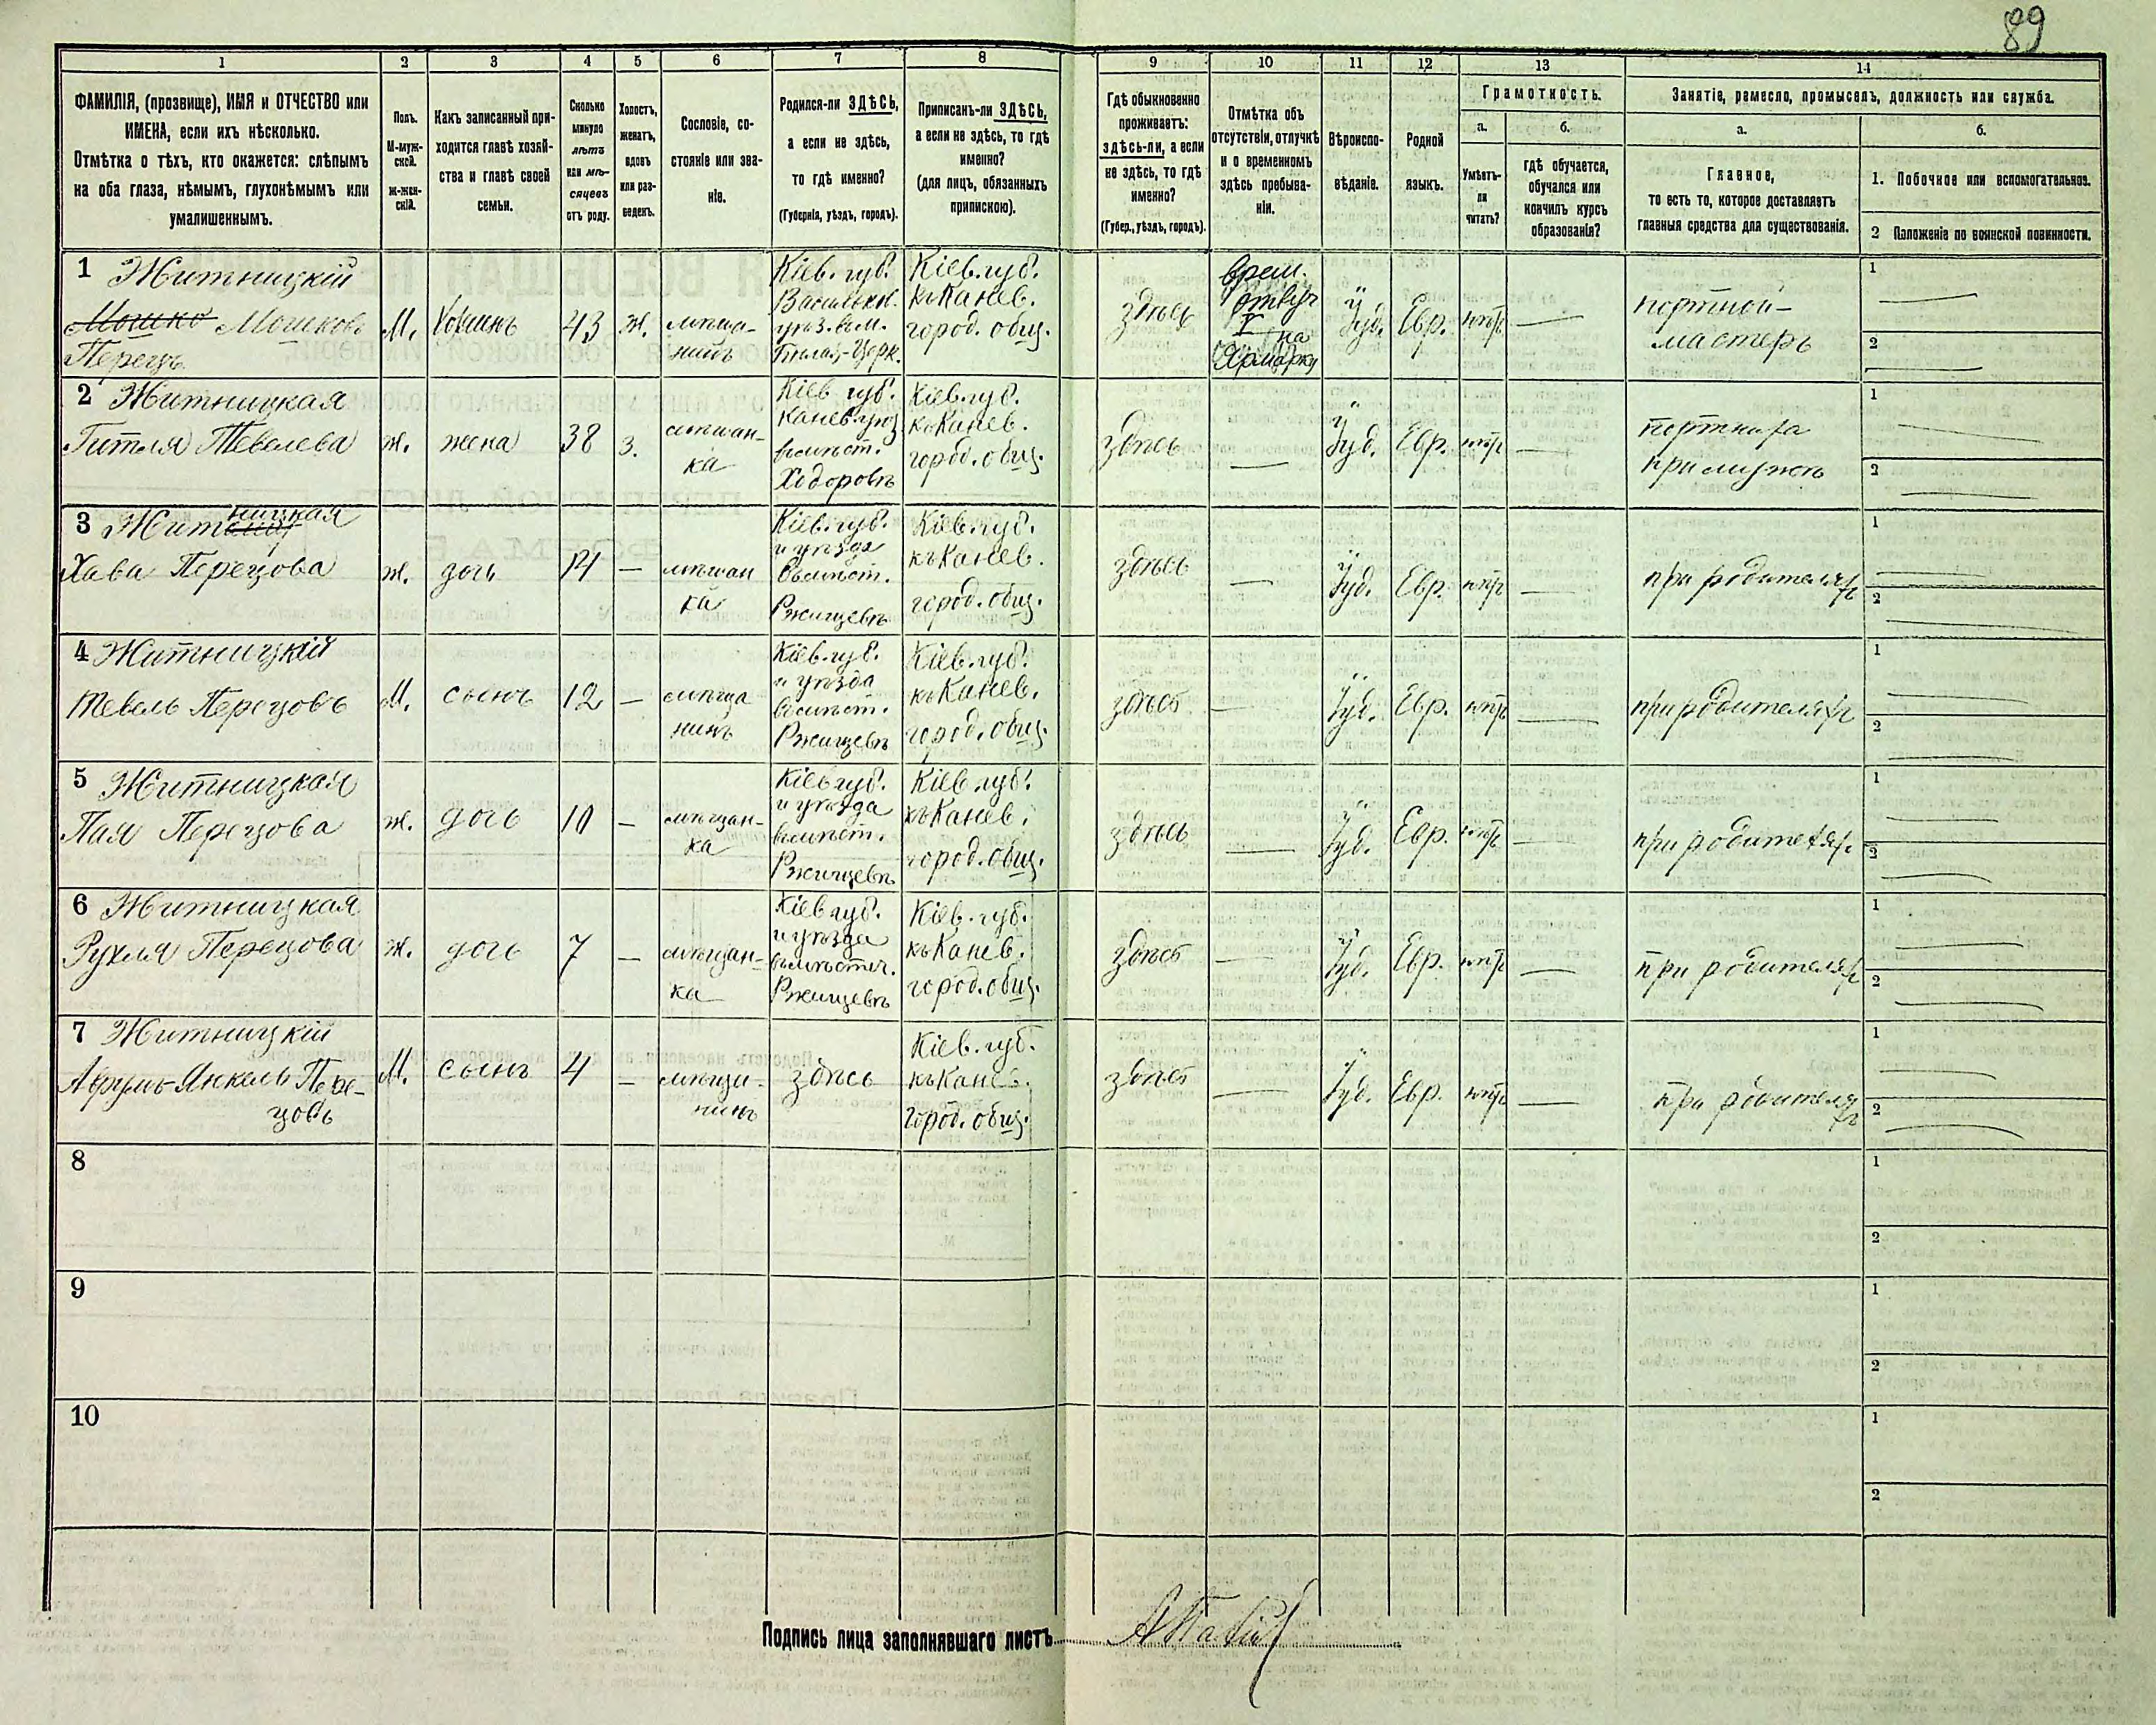 89
1 2 3 4 5 6 7 8 9 10 11 12 13 14
ФАМИЛІЯ, (прозвище), ИМЯ и ОТЧЕСТВО или
ИМЕНА, если ихъ нѣсколько.
Отмѣтка о тѣхъ, кто окажется: слѣпымъ
на оба глаза, нѣмымъ, глухонѣмымъ или
умалишеннымъ.
Полъ.
М-муж-
ской.
ж-жен-
скій.
Какъ записанный при-
ходится главѣ хозяй-
ства и главѣ своей
семьи.
Сколько
минуло
лѣтъ
или мѣ-
сяцевъ
отъ роду.
Холостъ,
женатъ,
вдовъ
или раз-
веденъ.
Сословіе, со-
стояніе или зва-
ніе.
Родился-ли ЗДѢСЬ,
а если не здѣсь,
то гдѣ именно?
(Губернія, уѣздъ, городъ).
Приписанъ-ли ЗДѢСЬ,
а если не здѣсь, то гдѣ
именно?
(для лицъ, обязанныхъ
припискою).
Гдѣ обыкновенно
проживаетъ:
здѣсь-ли, а если
не здѣсь, то гдѣ
именно?
(Губер., уѣздъ, городъ).
Отмѣтка объ
отсутствіи, отлучкѣ
и о временномъ
здѣсь пребыва-
ніи.
Вѣроиспо-
вѣданіе.
Родной
языкъ.
Грамотность.
а.
Умѣетъ-
ли
читать?
б.
гдѣ обучается,
обучался или
кончилъ курсъ
образованія?
Занятіе, ремесло, промыселъ, должность или служба.
а.
Главное,
то есть то, которое доставляетъ
главныя средства для существованія.
б.
1. Побочное или вспомогательное.
2 Положеніе по воинской повинности.
1 Житницкій
Мошко Мошковъ
Перецъ
М.
Хозяинъ
43
ж.
мѣща-
нинъ
Кіев. губ.
Васильк.
уѣз. въ м.
Бѣлая-Церк.
Кіев. губ.
къ Канев.
город. общ.
здѣсь
врем.
отлуч
на
Ярмарку
Іуд.
Евр.
портной-
мастеръ
1
2
2 Житницкая
Гитля Тевелева
ж.
жена
38
з.
мѣщан-
ка
Кіев губ.
Канев. уѣз
въ мѣст.
Ходоровѣ
Кіев. губ.
къ Канев.
город. общ.
здѣсь
Іуд.
Евр.
портниха
при мужѣ
1
2
3 Житницкая
Хава Перецова
ж.
дочь
14
мѣщан
ка
Кіев. губ.
и уѣзда
въ мѣст.
Ржищевѣ
Кіев. губ.
къ Канев.
город. общ.
здѣсь
Іуд.
Евр.
при родителяхъ
1
2
4 Житницкій
Тевель Перецовъ
М.
сынъ
12
мѣща
нинъ
Кіев. губ.
и уѣзда
въ мѣст.
Ржищевѣ
Кіев. губ.
къ Канев.
город. общ.
здѣсь
Іуд.
Евр.
при родителяхъ
1
2
5 Житницкая
Пая Перецова
ж.
дочь
10
мѣщан-
ка
Кіев губ.
и уѣзда
въ мѣст.
Ржищевѣ
Кіев. губ.
къ Канев.
город. общ.
здѣсь
Іуд.
Евр.
при родителях.
1
2
6 Житницкая
Рухля Перецова
ж.
дочь
7
мѣщан-
ка
Кіев губ.
и уѣзда
въ мѣстеч.
Ржищевѣ
Кіев. губ.
къ Канев.
город. общ.
здѣсь
Іуд.
Евр.
при родителяхъ
1
2
7 Житницкій
Аврумъ-Янкель Пере-
цовъ
М.
сынъ
4
мѣща-
нинъ
здѣсь
Кіев. губ.
къ Канев.
город. общ.
здѣсь
Іуд.
Евр.
при родителяхъ
1
2
8
1
2
9
1
2
10
1
2
Подпись лица заполнявшаго листъ